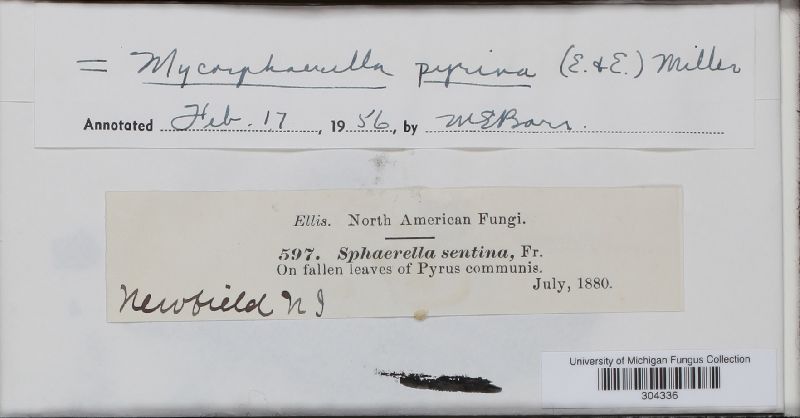 = Mycosphaerella pyrina (E. & E.) Miller
Annotated Feb. 17, 1956, by M E Barr.
Ellis. North American Fungi.
597. Sphaerella sentina, Fr.
On fallen leaves of Pyrus communis.
July, 1880.
Newfield N J
University of Michigan Fungus Collection
304336